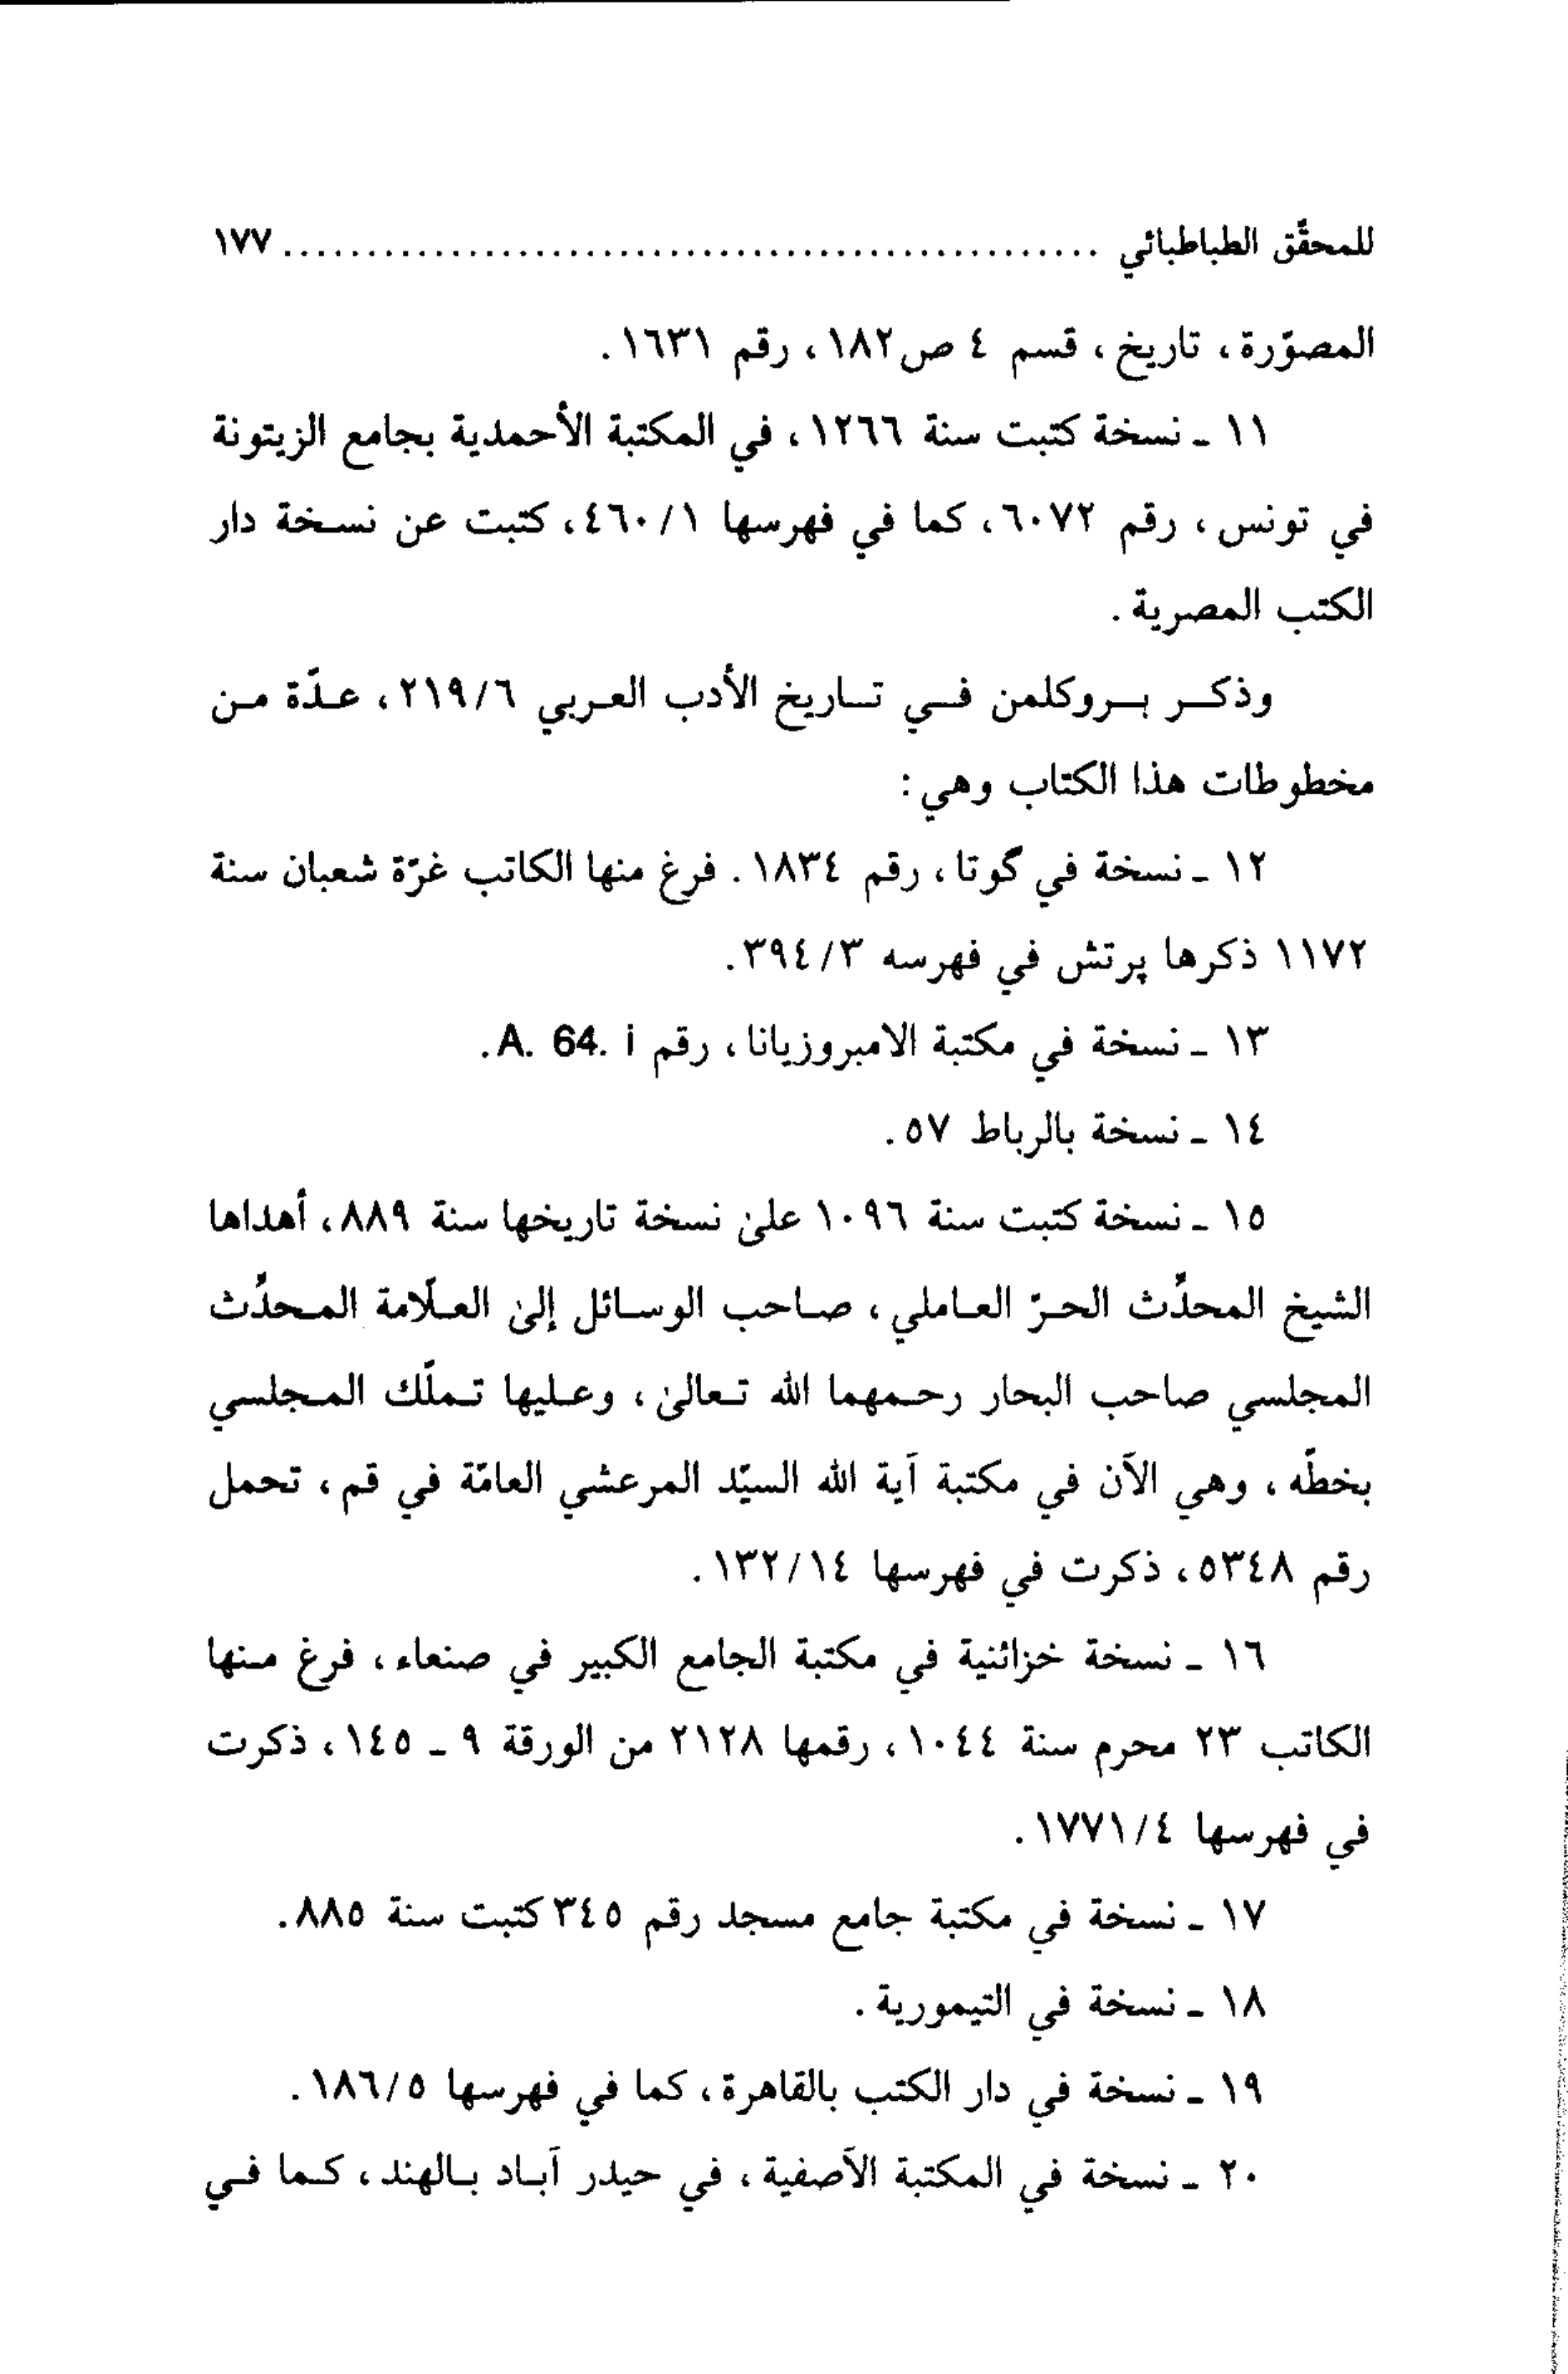 للمحقّق الطباطبائي ................................................ ١٧٧
المصوّرة ، تاريخ ، قسم ٤ ص١٨٢ ، رقم ١٦٣١ .
١١ ـ نسخة كتبت سنة ١٢٦٦ ، في المكتبة الأحمدية بجامع الزيتونة
في تونس ، رقم ٦٠٧٢ ، كما في فهرسها ٤٦٠/١ ، كتبت عن نسخة دار
الكتب المصرية .
وذكر بروكلمن في تاريخ الأدب العربي ٢١٩/٦ ، عدّة من
مخطوطات هذا الكتاب وهي :
١٢ ـ نسخة في گوتا ، رقم ١٨٣٤ . فرغ منها الكاتب غرّة شعبان سنة
١١٧٢ ذكرها پرتش في فهرسه ٣٩٤/٣ .
١٣ ـ نسخة في مكتبة الامبروزيانا ، رقم A. 64. i .
١٤ ـ نسخة بالرباط ٥٧ .
١٥ ـ نسخة كتبت سنة ١٠٩٦ علىٰ نسخة تاريخها سنة ٨٨٩ ، أهداها
الشيخ المحدِّث الحرّ العاملي ، صاحب الوسائل إلىٰ العلّامة المحدِّث
المجلسي صاحب البحار رحمهما الله تعالىٰ ، وعليها تملّك المجلسي
بخطّه ، وهي الآن في مكتبة آية الله السيّد المرعشي العامّة في قم ، تحمل
رقم ٥٣٤٨ ، ذكرت في فهرسها ١٣٢/١٤ .
١٦ ـ نسخة خزائنية في مكتبة الجامع الكبير في صنعاء ، فرغ منها
الكاتب ٢٣ محرم سنة ١٠٤٤ ، رقمها ٢١٢٨ من الورقة ٩ ـ ١٤٥ ، ذكرت
في فهرسها ١٧٧١/٤ .
١٧ ـ نسخة في مكتبة جامع مسجد رقم ٣٤٥ كتبت سنة ٨٨٥ .
١٨ ـ نسخة في التيمورية .
١٩ ـ نسخة في دار الكتب بالقاهرة ، كما في فهرسها ١٨٦/٥ .
٢٠ ـ نسخة في المكتبة الآصفية ، في حيدر آباد بالهند ، كما في